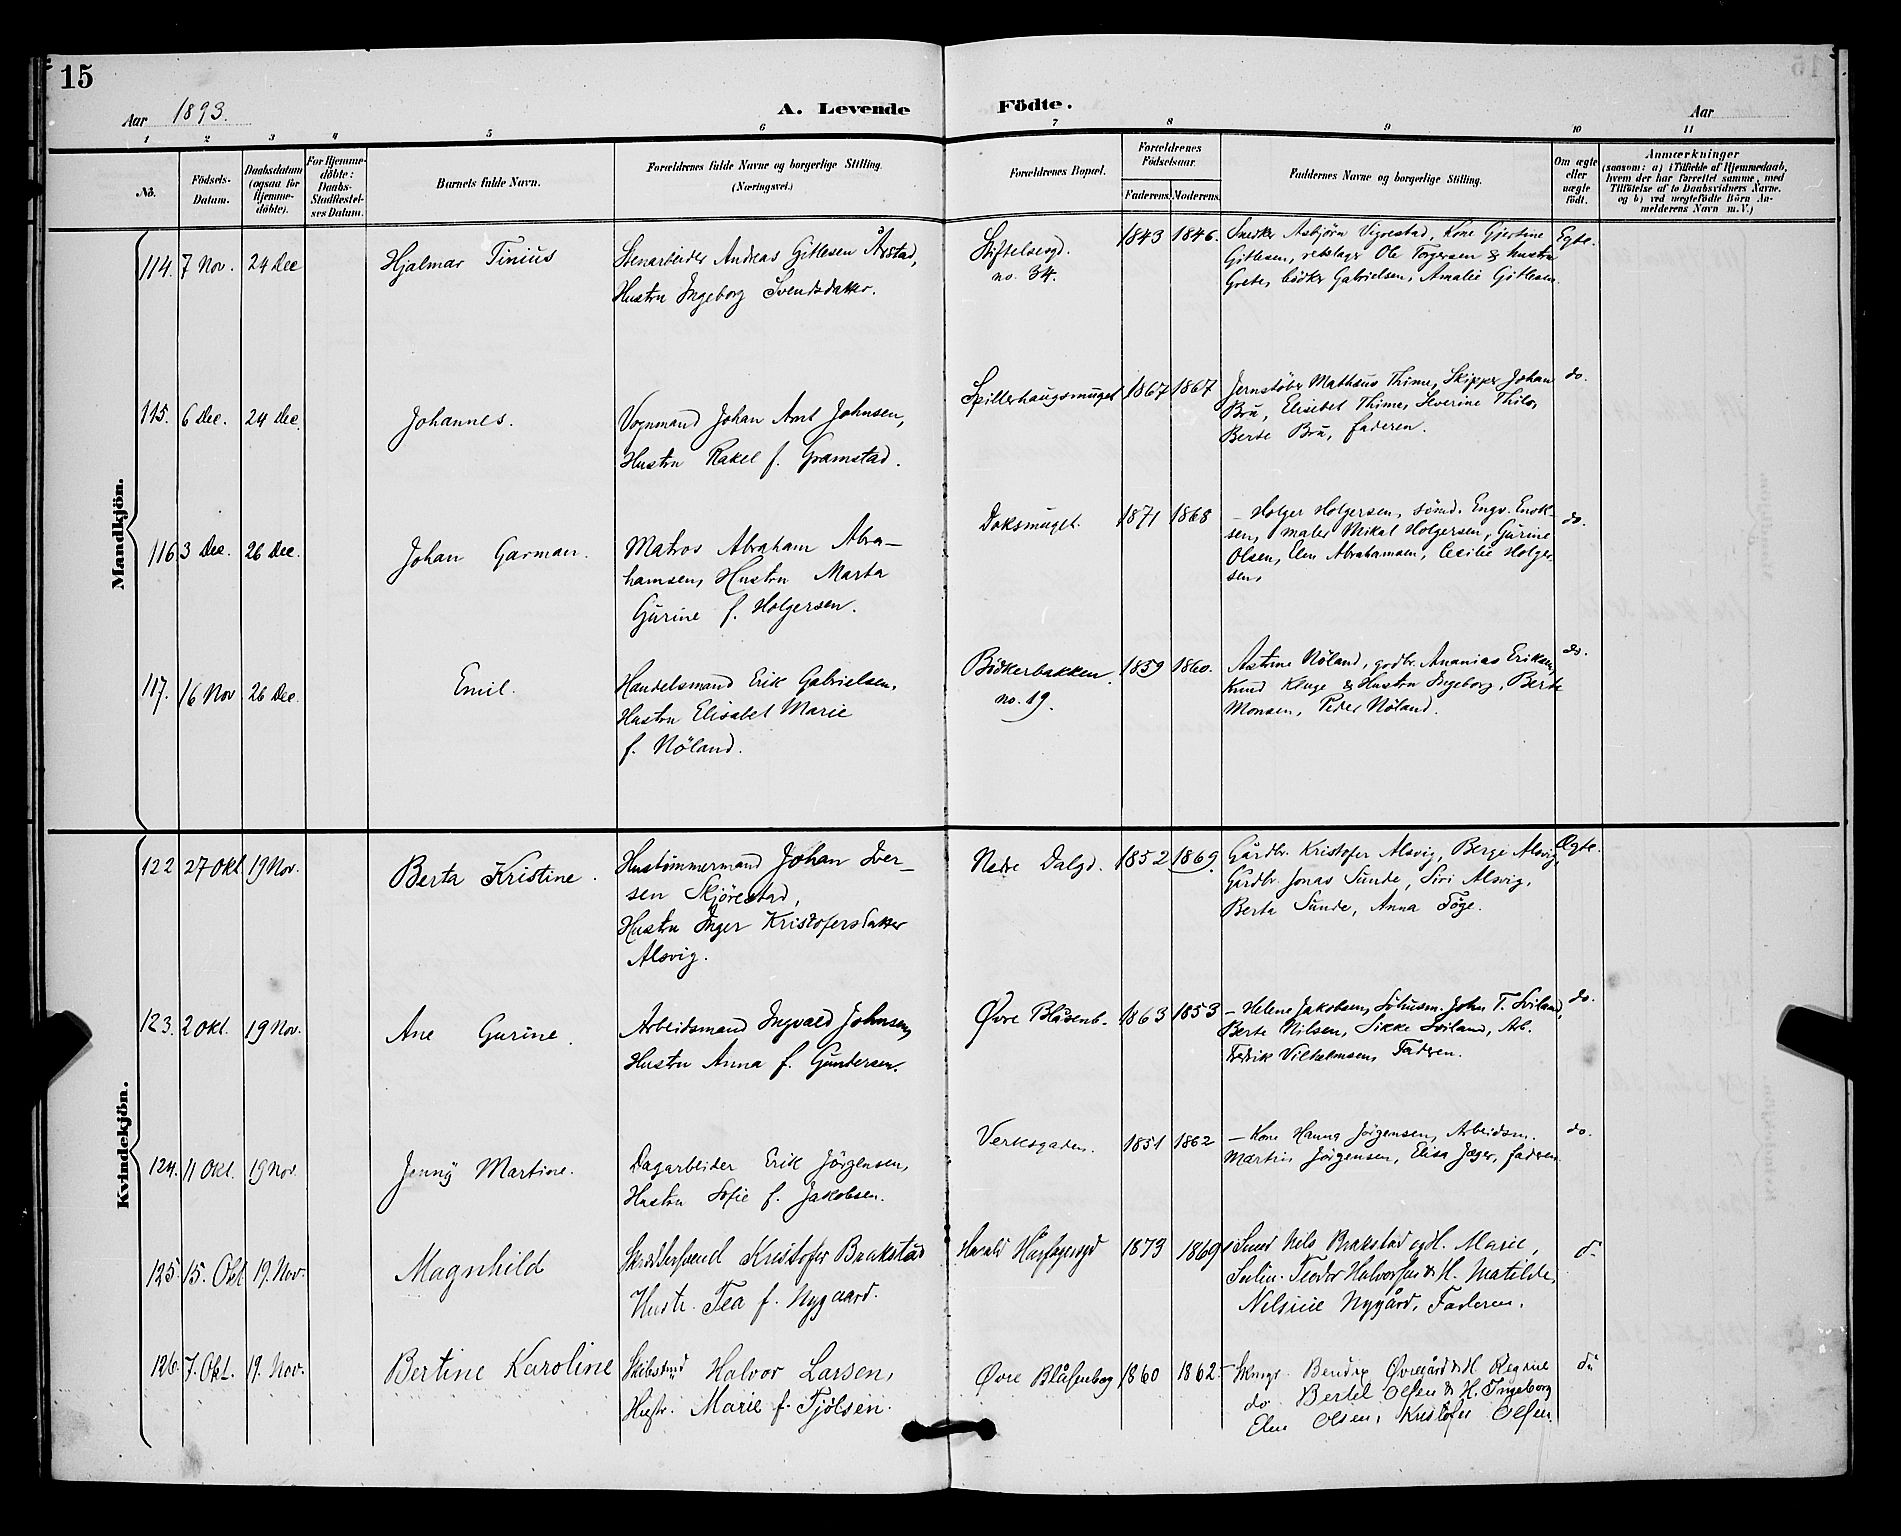 15
Aar 1893.
A. Levende Födte.
Aar
1 2 3 4 5 6 7 8 9 10 11
No.
Födsels-Datum.
Daabsdatum (ogsaa for Hjemme-döbte).
For Hjemme-döbte: Daabs-Stadfæstel-ses Datum.
Barnets fulde Navn.
Forældrenes fulde Navne og borgerlige Stilling. (Næringsvei.)
Forældrenes Bopæl.
Forældrenes Födselsaar.
Faderens. Moderens.
Faddernes Navne og borgerlige Stilling.
Om ægte eller uægte födt.
Anmærkninger
(saasom: a) i Tilfælde af Hjemmedaab, hvem der har forrettet samme, med Tilföielse af to Daabsvidners Navne, og b) ved uægtefödte Börn An-melderens Navn m. V.)
Mandkjön.
114. 7 Nov. 24 Dec
Hjalmar Tinius
Stenarbeider Andreas Gitlesen Årstad,
Hustru Ingeborg Svendsdatter.
Stiftelsesgd.
no. 34.
1843 1846.
Snedker Asbjörn Vigrestad, Kone Gjertine
Gitlesen, rebslager Ole Torgersen & hustru
Grete, bödker Gabrielsen, Amalie Gitlesen.
Egte.
115. 6 Dec. 24 Dec.
Johannes.
Vognmand Johan Arnt Johnsen,
Hustru Rakel f. Gramstad.
Spilderhaugsmuget
1867 1867
Jernstöber Mathæus Thime, Skipper Johan
Bru, Elisebet Thime, Severine Thilo,
Berte Bru, faderen.
do.
116 3 Dec. 26 Dec.
Johan Garman.
Matros Abraham Abra-
hamsen, Hustru Marta
Gurine f. Holgersen.
Doksmuget.
1871 1868
– Holger Holgersen, sömd. Engv. Enok-
sen, maler Mikal Holgersen, Gurine
Olsen, Elen Abrahamsen, Cecilie Holger-
sen,
do.
117. 16 Nov 26 Dec.
Emil.
Handelsmand Erik Gabrielsen,
Hustru Elisabet Marie
f. Nöland.
Bödkerbakken
no. 19.
1859 1860.
Nöland, gdbr. Ananias Eriksen,
Knud Kluge & Hustru Ingeborg, Berte
Monsen, Peder Nöland.
do.
Kvindekjön.
122 27 Okt. 19 Nov.
Berta Kristine.
Hustömmermand Johan Iver-
sen Skjörestad,
Hustru Inger Kristofersdatter
Alsvig.
Nedre Dalgd.
1852 1869.
Gårdbr. Kristofer Alsvig, Berge Alsvig,
Gårdbr. Jonas Sunde, Siri Alsvig,
Berta Sunde, Anna Töge.
Ægte.
123. 2 Okt. 19 Nov.
Ane Gurine.
Arbeidsmand Ingvald Johnsen,
Hustru Anna f. Gundersen.
Øvre Blåsenb.
1863 1853
– Helene Jakobsen, John T. Sviland,
Berte Nilsen, Sikke Sviland, Arb.
Fredrik Vilhelmsen, Faderen.
do.
124. 11 Okt. 19 Nov.
Jenny Martine.
Dagarbeider Erik Jörgensen,
Hustru Sofie f. Jakobsen.
Verksgaden.
1851 1862
– Kone Hanna Jörgensen, Arbeidsm.
Martin Jörgensen, Elisa Jæger, faderen.
do.
125. 15. Okt 19. Nov.
Magnhild
Skrædersvend Kristofer Brakstad
Hustr. Tea f. Nygaard.
Harald Hårfagersgd
1873 1869
Smed Nels Brakstad og H. Marie,
Teodor Halvorsen & H. Matilde,
Nelsine Nygård, Faderen.
do
126. 7. Okt. 19. Nov.
Bertine Karoline
Halvor Larsen,
Hustr. Marie f. Tjölsen.
Øvre Blåsenborg
1860 1862.
– Bendix Øvregård & H. Regine
do Bertel Olsen & H. Ingeborg
Elen Olsen, Kristofer Olsen
do